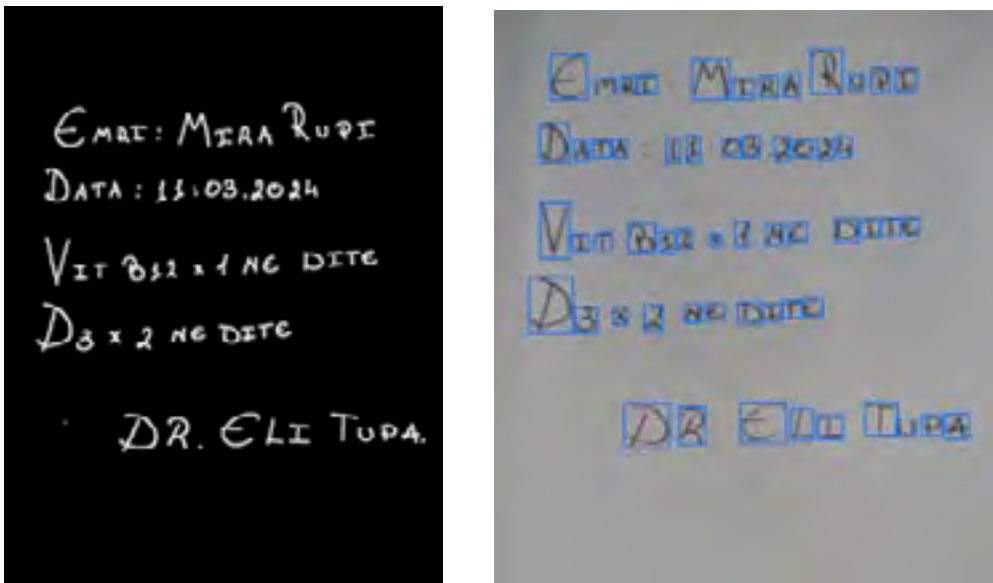 Emri: Mira Rupi
Data: 11.03.2024
Vit B12 x 1 ne dite
D3 x 2 ne dite
Dr. Eli Tupa.
Emri Mira Rupi
Data : 11 03.2024
Vit B12 x 1 ne dite
D3 x 2 ne dite
Dr Eli Tupa